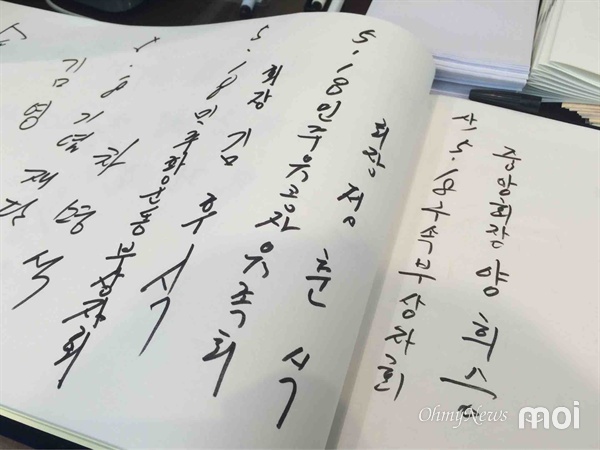 김 영
5.18 기념재단
차명석
5.18민주화운동부상자회
회장 김후식
5.18민주유공자유족회
회장 정춘식
사.5.18구속부상자회
중앙회장 양희승
OhmyNews
moi